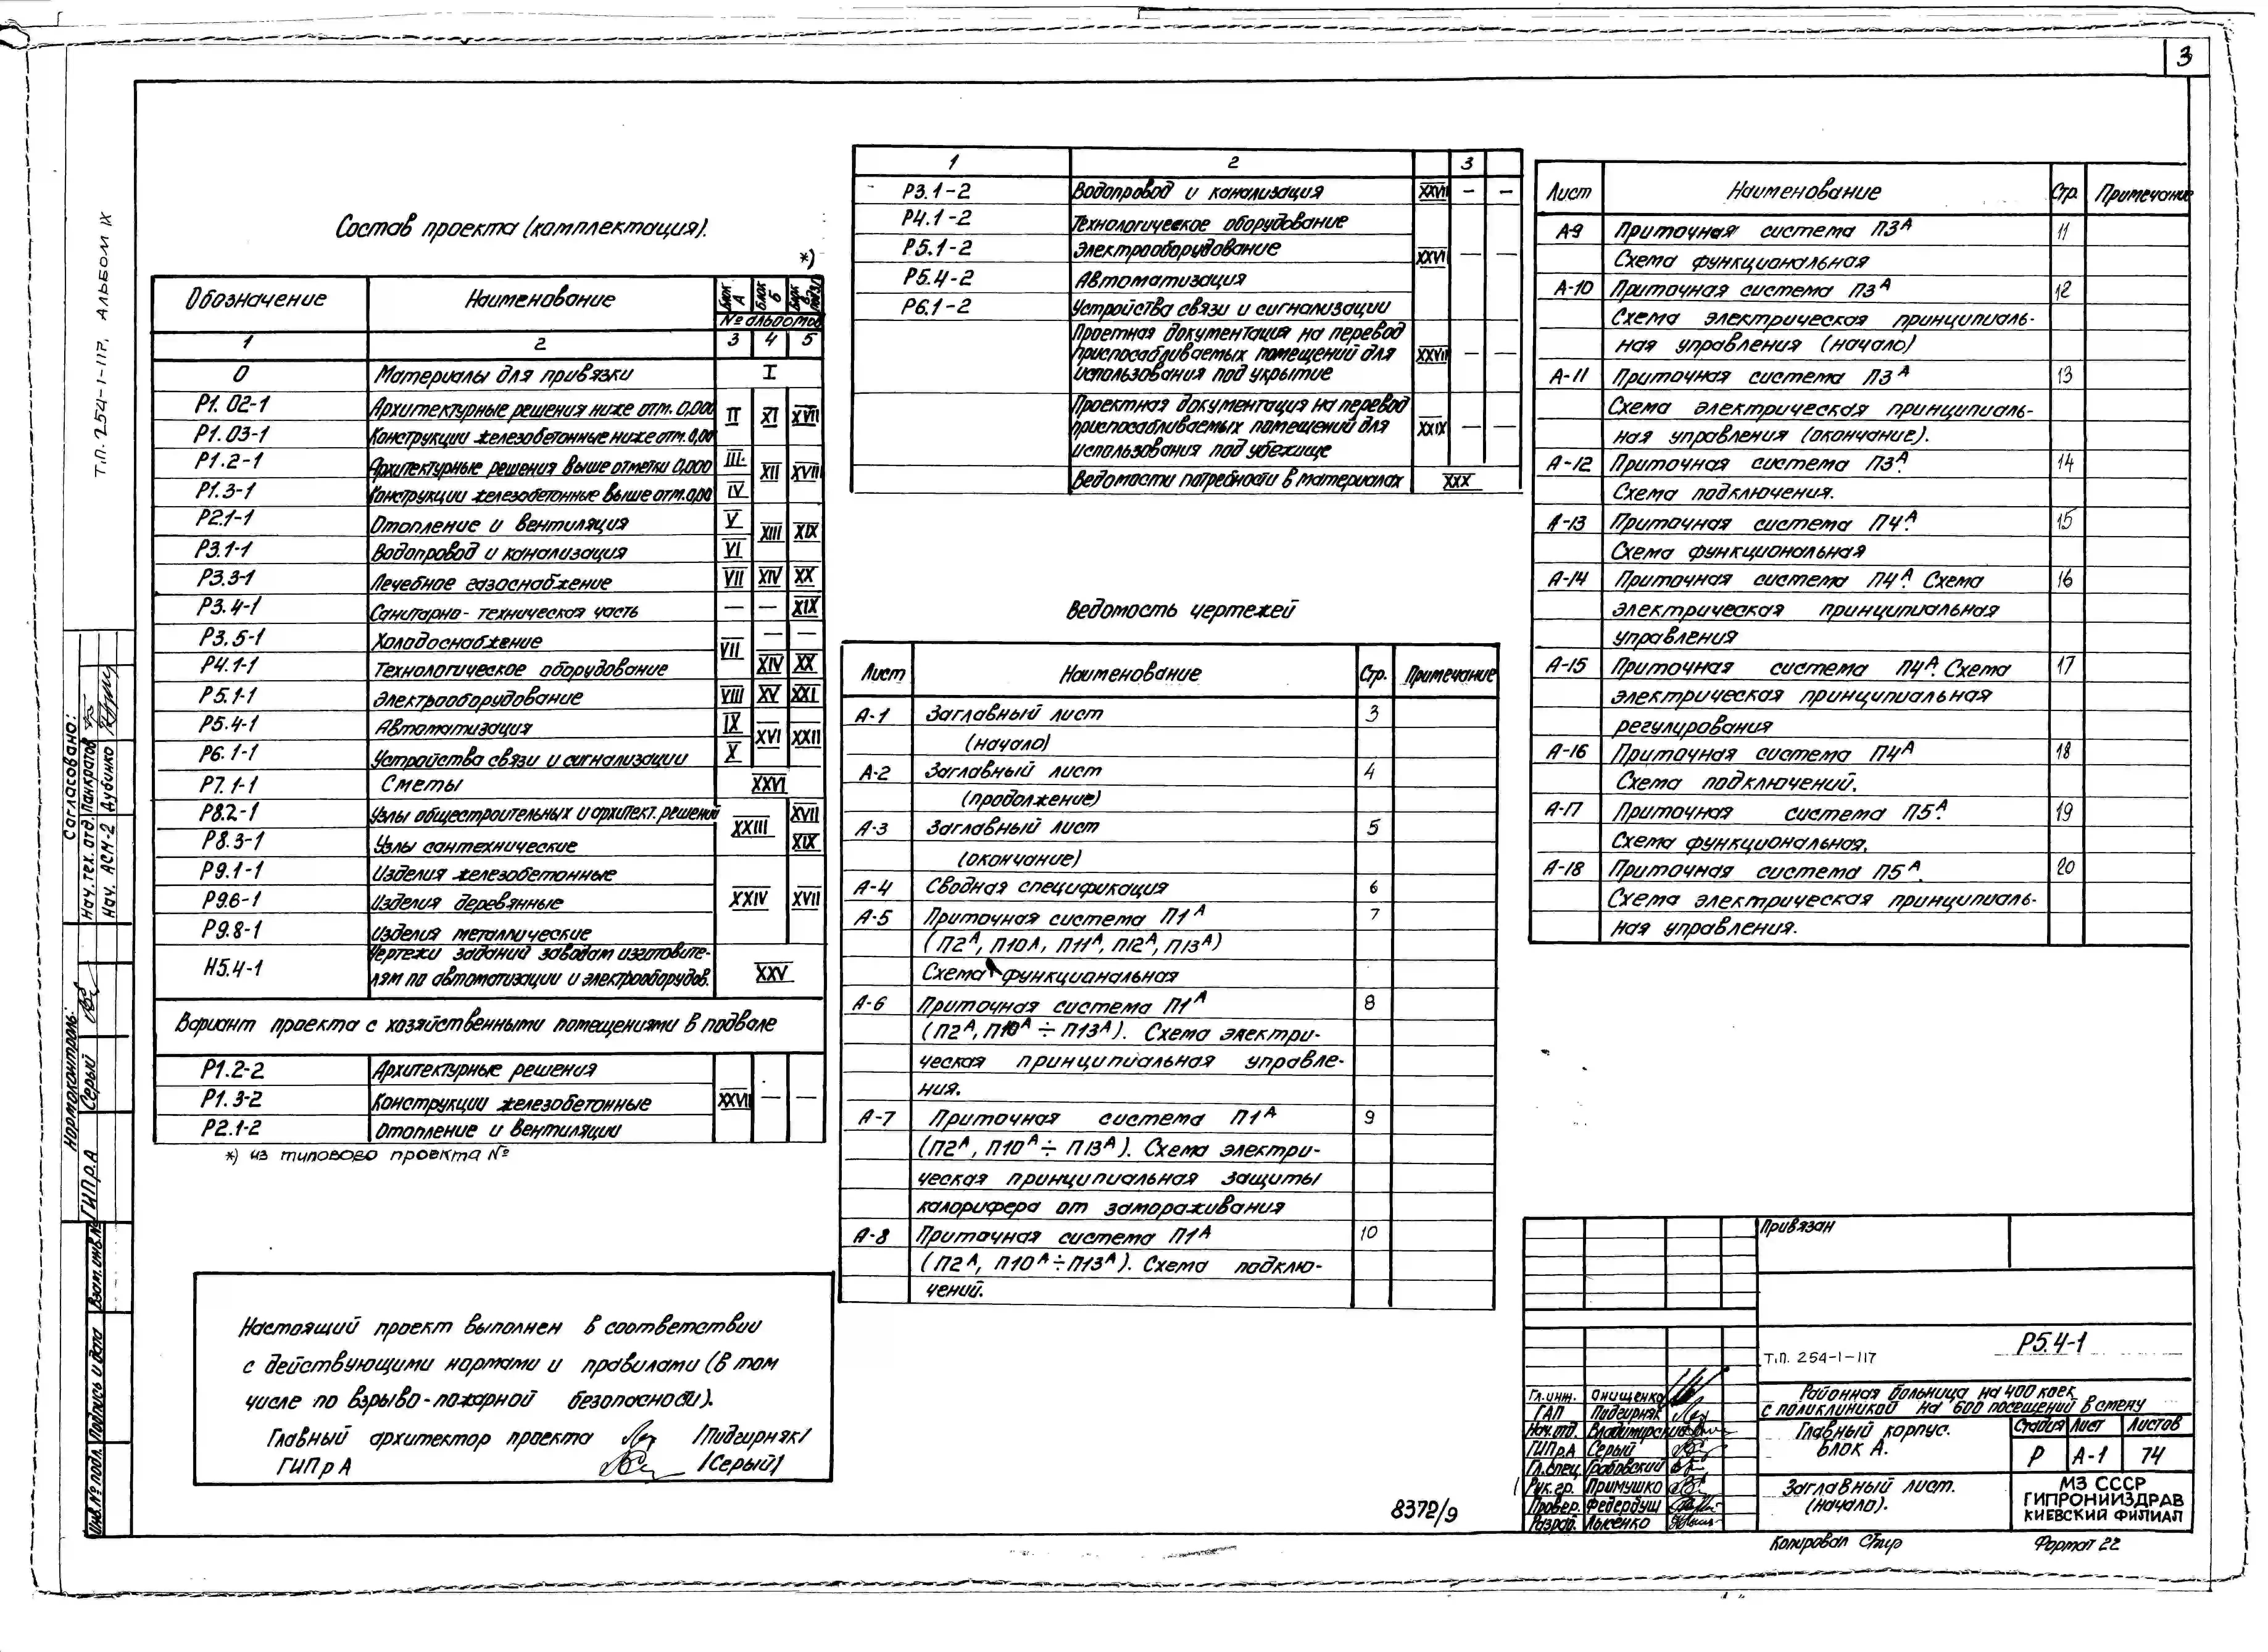 3
Т.П. 254-1-117, АЛЬБОМ IX
Состав проекта (комплектация).
*)
Обозначение Наименование блок А блок Б
№ альбомов
1 2 3 4 5
0 Материалы для привязки I
Р1.02-1 Архитектурные решения ниже отм. 0,000 II XI XVII
Р1.03-1 Конструкции железобетонные ниже отм. 0,00
Р1.2-1 Архитектурные решения выше отметки 0,000 III XII XVIII
Р1.3-1 Конструкции железобетонные выше отм. 0,00 IV
Р2.1-1 Отопление и вентиляция V XIII XIX
Р3.1-1 Водопровод и канализация VI
Р3.3-1 Лечебное газоснабжение VII XIV XX
Р3.4-1 Санитарно-техническая часть — — XIX
Р3.5-1 Холодоснабжение VII — —
Р4.1-1 Технологическое оборудование XIV XX
Р5.1-1 Электрооборудование VIII XV XXI
Р5.4-1 Автоматизация IX XVI XXII
Р6.1-1 Устройства связи и сигнализации X
Р7.1-1 Сметы XXVI
Р8.2-1 Узлы общестроительных и архитект. решений XXIII XVII
Р8.3-1 Узлы сантехнические XIX
Р9.1-1 Изделия железобетонные
Р9.6-1 Изделия деревянные XXIV XVII
Р9.8-1 Изделия металлические
Н5.4-1 Чертежи заданий заводам изготовите-
лям по автоматизации и электрооборудов. XXV
Вариант проекта с хозяйственными помещениями в подвале
Р1.2-2 Архитектурные решения
Р1.3-2 Конструкции железобетонные XXVII — —
Р2.1-2 Отопление и вентиляции
*) из типового проекта №
Настоящий проект выполнен в соответствии
с действующими нормами и правилами (в том
числе по взрыво-пожарной безопасности).
Главный архитектор проекта /Пидгирняк/
ГИПрА /Серый/
1 2 3
Р3.1-2 Водопровод и канализация XXVII — —
Р4.1-2 Технологическое оборудование
Р5.1-2 Электрооборудование XXVI — —
Р5.4-2 Автоматизация
Р6.1-2 Устройства связи и сигнализации
Проетная документация на перевод
приспосабливаемых помещений для XXVII — —
использования под укрытие
Проектная документация на перевод
приспосабливаемых помещений для XXIX — —
использования под убежище
Ведомости потребности в материалах XXX
Ведомость чертежей
Лист Наименование Стр. Примечание
А-1 Заглавный лист 3
(начало)
А-2 Заглавный лист 4
(продолжение)
А-3 Заглавный лист 5
(окончание)
А-4 Сводная спецификация 6
А-5 Приточная система П1А 7
(П2А, П10А, П11А, П12А, П13А)
Схема функциональная
А-6 Приточная система П1А 8
(П2А, П10А ÷ П13А). Схема электри-
ческая принципиальная управле-
ния.
А-7 Приточная система П1А 9
(П2А, П10А ÷ П13А). Схема электри-
ческая принципиальная защиты
калорифера от замораживания
А-8 Приточная система П1А 10
(П2А, П10А ÷ П13А). Схема подклю-
чений.
Лист Наименование Стр. Примечание
А-9 Приточная система П3А 11
Схема функциональная
А-10 Приточная система П3А 12
Схема электрическая принципиаль-
ная управления (начало)
А-11 Приточная система П3А 13
Схема электрическая принципиаль-
ная управления (окончание).
А-12 Приточная система П3А. 14
Схема подключения.
А-13 Приточная система П4А. 15
Схема функциональная
А-14 Приточная система П4А. Схема 16
электрическая принципиальная
управления
А-15 Приточная система П4А. Схема 17
электрическая принципиальная
регулирования
А-16 Приточная система П4А 18
Схема подключений.
А-17 Приточная система П5А. 19
Схема функциональная.
А-18 Приточная система П5А. 20
Схема электрическая принципиаль-
ная управления.
Согласовано:
Нач. тех. отд. Панкратов
Нач. АСМ-2 Дубинко
Нормоконтроль:
ГИПр.А Серый
Взам. инв. №
Подпись и дата
Инв. № подл.
Привязан
Т.П. 254-1-117 Р5.4-1
Районная больница на 400 коек
с поликлиникой на 600 посещений в смену
Главный корпус.
Блок А.
Стадия Лист Листов
Р А-1 74
Заглавный лист.
(начало).
МЗ СССР
ГИПРОНИИЗДРАВ
КИЕВСКИЙ ФИЛИАЛ
Гл. инж. Онищенко
ГАП Пидгирняк
Нач. отд. Владимирский
ГИПрА Серый
Гл. спец. Грабовский
Рук. гр. Примушко
Провер. Федербуш
Разраб. Лысенко
8372/9
Копировал
Формат 22